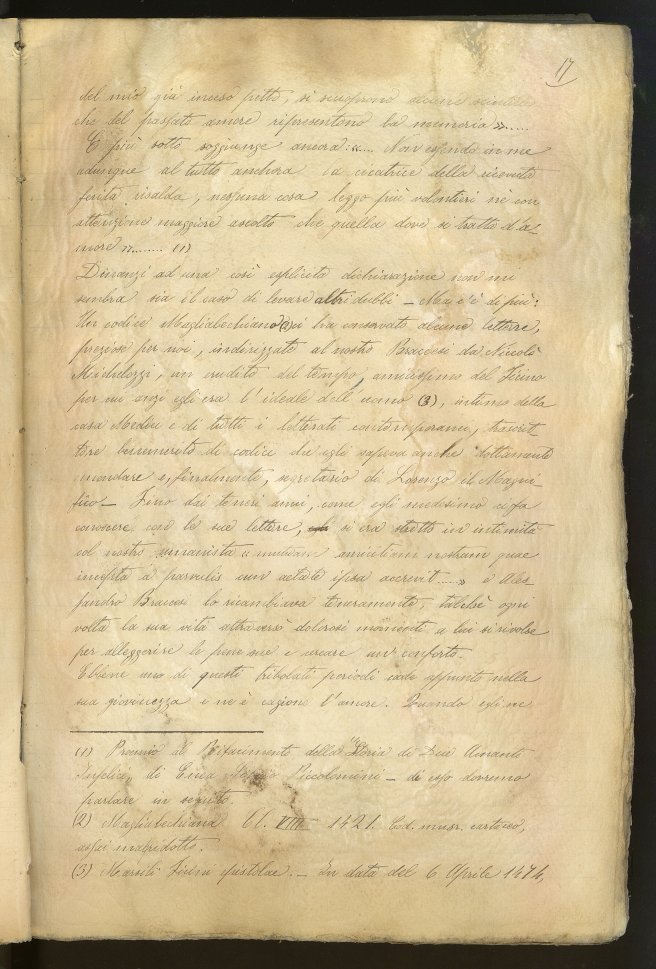 17
del mio già inceso petto, si scuoprono alcune scintille
che del passato amore ripresentono la memoria ».....
E più sotto soggiunge ancora: «.... Non essendo in me
adunque al tutto anchora la cicatrice della ricevuta
ferita risalda, nessuna cosa leggo più volontieri nè con
attenzione maggiore ascolto che quella dove si tratta d'a-
more »........ (1)
Dinanzi ad una così esplicita dichiarazione non mi
sembra sia il caso di levare altri dubbi – Ma c'è di più:
Un codice Magliabechiano (2) ci ha conservato alcune lettere,
preziose per noi, indirizzate al nostro Braccesi da Niccolò
Michelozzi, un erudito del tempo, amicissimo del Ficino
per cui anzi egli era l'ideale dell'uomo (3), intimo della
casa Medici e di tutti i letterati contemporanei, trascrit-
tore benemerito di codici che egli sapeva anche dottamente
emendare e, finalmente, segretario di Lorenzo il Magni-
fico – Fino dai teneri anni, come egli medesimo ci fa
conoscere con le sue lettere, si era stretto in intimità
col nostro umanista « mutuam amicitiam nostram quae
incepta a parvulis cum aetate ipsa accrevit ..... » e Ales-
sandro Braccesi lo ricambiava teneramente, talchè ogni
volta la sua vita attraversò dolorosi momenti a lui si rivolse
per alleggerire le pene sue e cercare un conforto.
Ebbene uno di questi tribolati periodi cade appunto nella
sua giovinezza e ne è cagione l'amore. Quando egli ne
(1) Proemio al Rifacimento della "Storia di Due Amanti
Infelici" di Enea Silvio Piccolomini – di esso dovremo
parlare in seguito.
(2) Magliabechiana Cl. VIII 1421. Cod. misc. cartaceo,
assai malridotto.
(3) Marsili Ficini epistolae. – In data del 6 Aprile 1474,